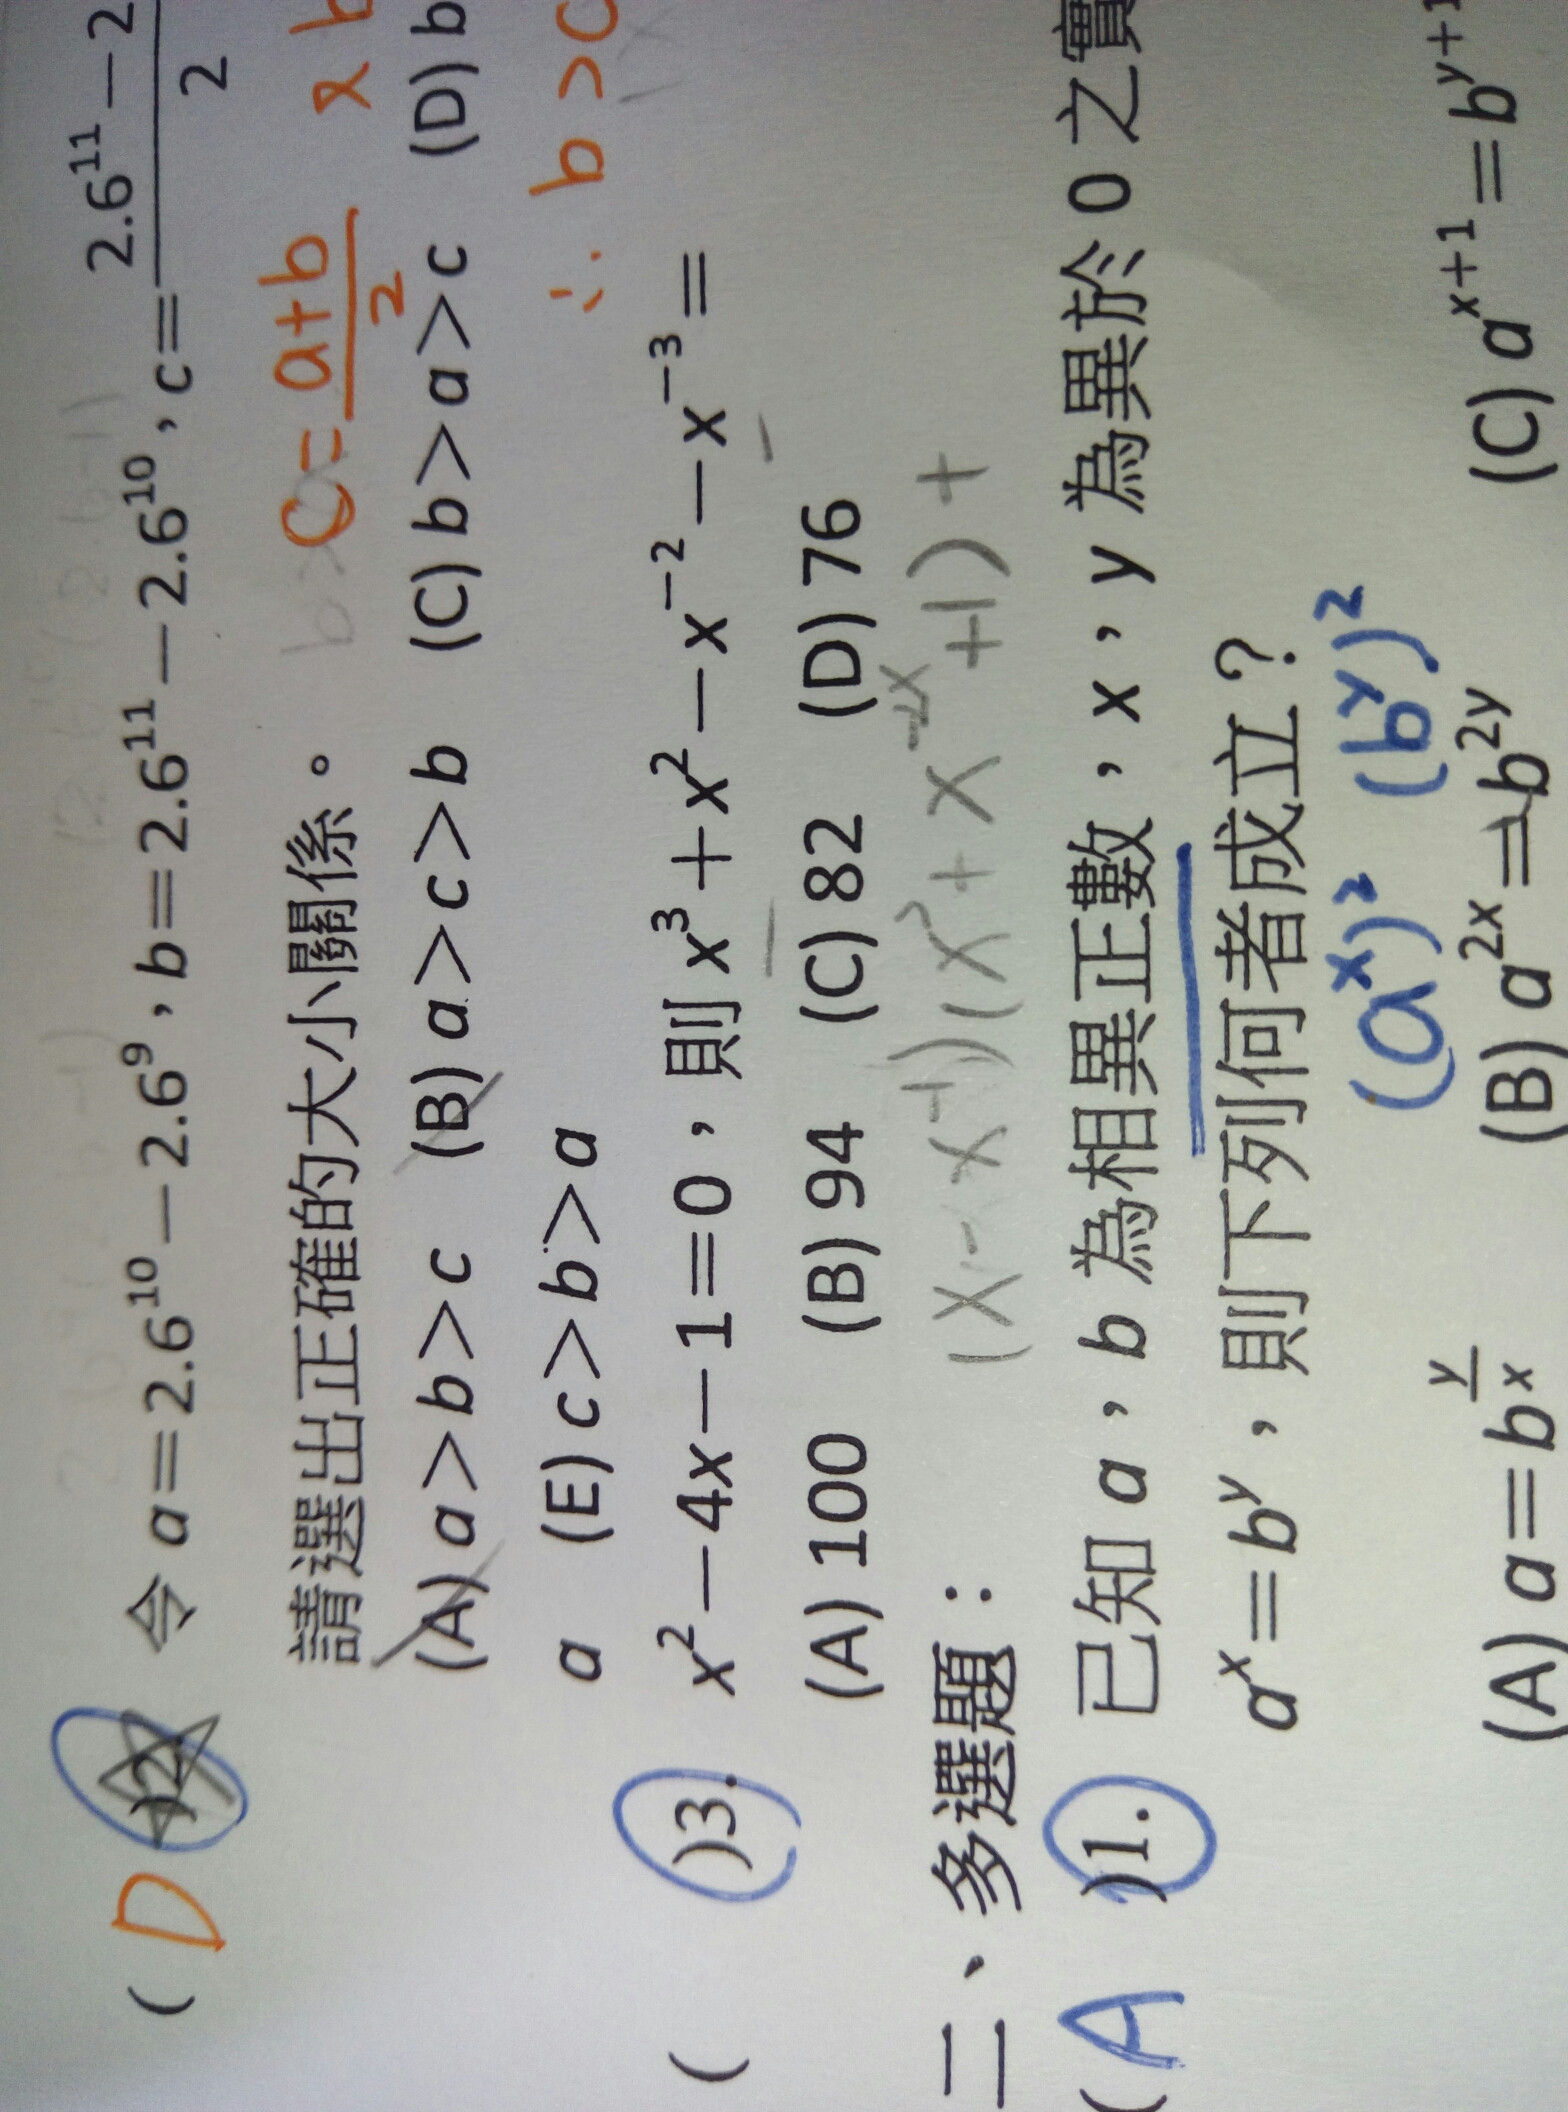 ( D )2. 令 a=2.6¹⁰−2.6⁹,b=2.6¹¹−2.6¹⁰,c=(2.6¹¹−2
2
請選出正確的大小關係。
c=(a+b)/2 又 b
(A) a>b>c (B) a>c>b (C) b>a>c (D) b
a (E) c>b>a
∴ b>c
( )3. x²−4x−1=0,則 x³+x²−x⁻²−x⁻³=
(A) 100 (B) 94 (C) 82 (D) 76
(x−x⁻¹)(x²+x⁻²x+1)+
二、多選題:
( A )1. 已知 a,b 為相異正數,x,y 為異於 0 之實
aˣ=bʸ,則下列何者成立?
(aˣ)² (bʸ)²
(A) a=b^(y/x) (B) a²ˣ=b²ʸ (C) aˣ⁺¹=bʸ⁺¹